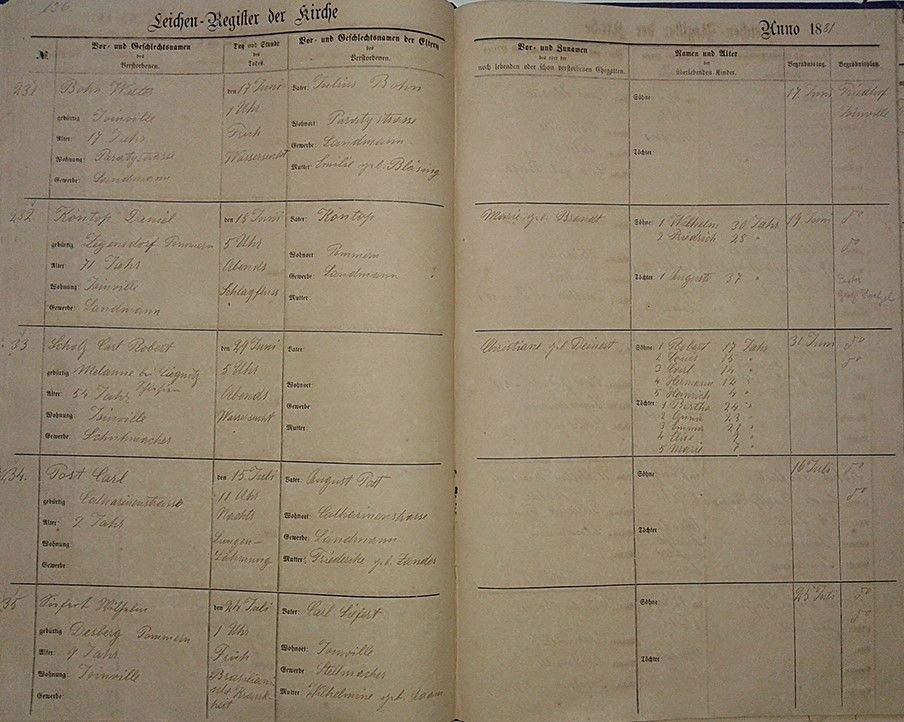 156
Leichen-Register der Kirche
Anno 1881
№
Vor- und Geschlechtsnamen
des
Verstorbenen.
Tag und Stunde
des
Todes.
Vor- und Geschlechtsnamen der Eltern
des
Verstorbenen.
Vor- und Zunamen
des oder der
noch lebenden oder schon verstorbenen Ehegatten.
Namen und Alter
der
überlebenden Kinder.
Begräbnisstag.
Begräbnisplatz.
231
Bohn
gebürtig Joinville
Alter: 17 Jahr
Wohnung: Paratystrasse
Gewerbe: Landmann
den 17 Juni
1 Uhr
Früh
Wassersucht
Vater: Julius Bohn
Wohnort: Paratystrasse
Gewerbe: Landmann
Mutter: Emilie geb. Bläsing
Söhne:
Töchter:
17 Juni
Friedhof
Joinville
232
Köntop Daniel
gebürtig Pommern
Alter 71 Jahr
Wohnung: Joinville
Gewerbe: Landmann
den 18 Juni
5 Uhr
Abends
Schlagfluss
Vater: Köntop
Wohnort Pommern
Gewerbe: Landmann
Mutter
Marie geb. Brandt
Söhne: 1 Wilhelm 30 Jahr
2 Friedrich 28 "
Töchter: 1 Auguste 37 "
19 Juni
do
do
33
Scholz Carl Robert
gebürtig bei Liegnitz
Alter: 54 Jahr
Wohnung: Joinville
Gewerbe: Schuhmacher
den 29 Juni
5 Uhr
Abends
Wassersucht
Vater:
Wohnort:
Gewerbe:
Mutter:
Christiane geb. Deinert
Söhne: 1 Robert 17 Jahr
2 Louis 15 "
3 Carl 14 "
4 Hermann 12 "
5 Heinrich 4 "
Töchter: 1 Bertha 24 "
2 Anna 23 "
3 Emma 21 "
5 Marie
31 Juni
do
do
34.
Post Carl
gebürtig Catharinenstrasse
Alter: 2 Jahr
Wohnung:
Gewerbe:
den 15 Juli
11 Uhr
Nachts
Lungen-
Lähmung
Vater: August Post
Wohnort: Catharinenstrasse
Gewerbe: Landmann
Mutter: Friedericke geb. Zander
Söhne:
Töchter:
16 Juli
do
do
35
Siefert Wilhelm
gebürtig Pommern
Alter: 9 Jahr
Wohnung: Joinville
Gewerbe:
den 24 Juli
1 Uhr
Früh
Vater: Carl Siefert
Wohnort: Joinville
Gewerbe Stellmacher
Mutter Wilhelmine geb.
Söhne:
Töchter:
25 Juli
do
do